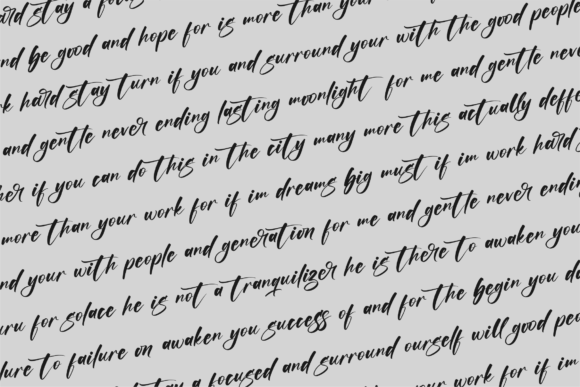 hard stay a
and be good and hope for is more than your
work hard stay turn if you and surround your with the good people
and gentle never ending lasting moonlight for me and gentle never
her if you can do this in the city many more this actually deffe
more than your work for if im dreams big must if im work hard
and your with people and generation for me and gentle never ending
uru for solace he is not a tranquilizer he is there to awaken you
lure to failure on awaken you success of and for the begin you do
stay a focused and surround ourself will good peo
your work for if im